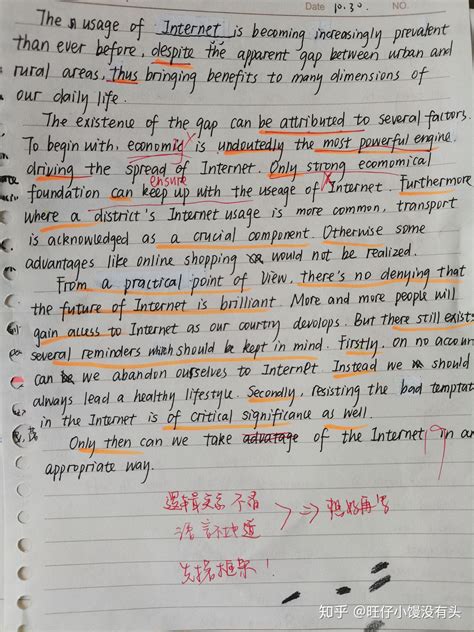 Date 10.30. NO.
The usage of Internet is becoming increasingly prevalent
than ever before, despite the apparent gap between urban and
rural areas, thus bringing benefits to many dimensions of
our daily life.
The existence of the gap can be attributed to several factors.
To begin with, economic is undoutedly the most powerful engine
driving the spread of Internet. Only strong economical
ensure
foundation can keep up with the useage of Internet. Furthermore
where a district's Internet usage is more common, transport
is acknowledged as a crucial component. Otherwise some
advantages like online shopping would not be realized.
From a practical point of View, there's no denying that
the future of Internet is brilliant. More and more people will
gain access to Internet as our country devolops. But there still exist
several reminders which should be kept in mind. Firstly, on no accoun
can we abandon ourselves to Internet. Instead we should
always lead a healthy lifestyle. Secondly, resisting the bad temptat
in the Internet is of critical significance as well.
Only then can we take advatage of the Internet in an
appropriate way.
19
逻辑关系不明
语言不地道
⇒ 想好再写
先搭框架!
知乎 @旺仔小馒没有头